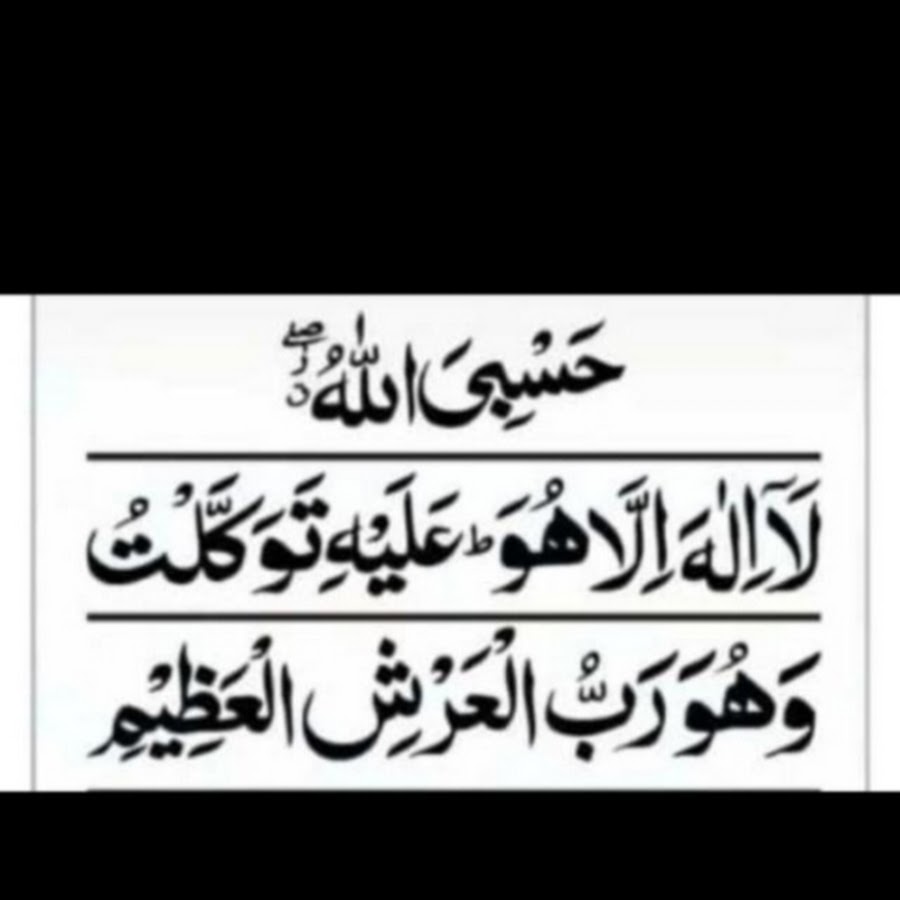 حَسْبِیَ اللّٰهُ ۖ ز
لَاۤ اِلٰهَ اِلَّا هُوَ ؕ عَلَیْهِ تَوَكَّلْتُ
وَهُوَ رَبُّ الْعَرْشِ الْعَظِیْمِ